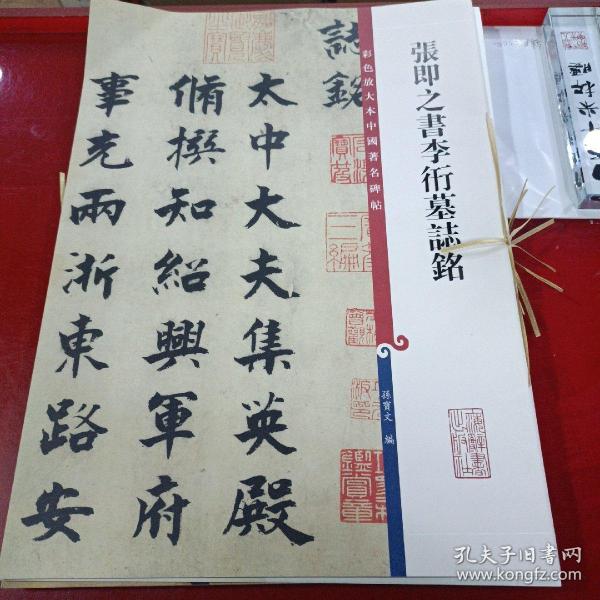 張即之書李衎墓誌銘
彩色放大本中國著名碑帖
孫寶文 編
誌銘
太中大夫集英殿
脩撰知紹興軍府
事充兩浙東路安
上海辭書出版社
孔夫子旧书网
www.kongfz.com